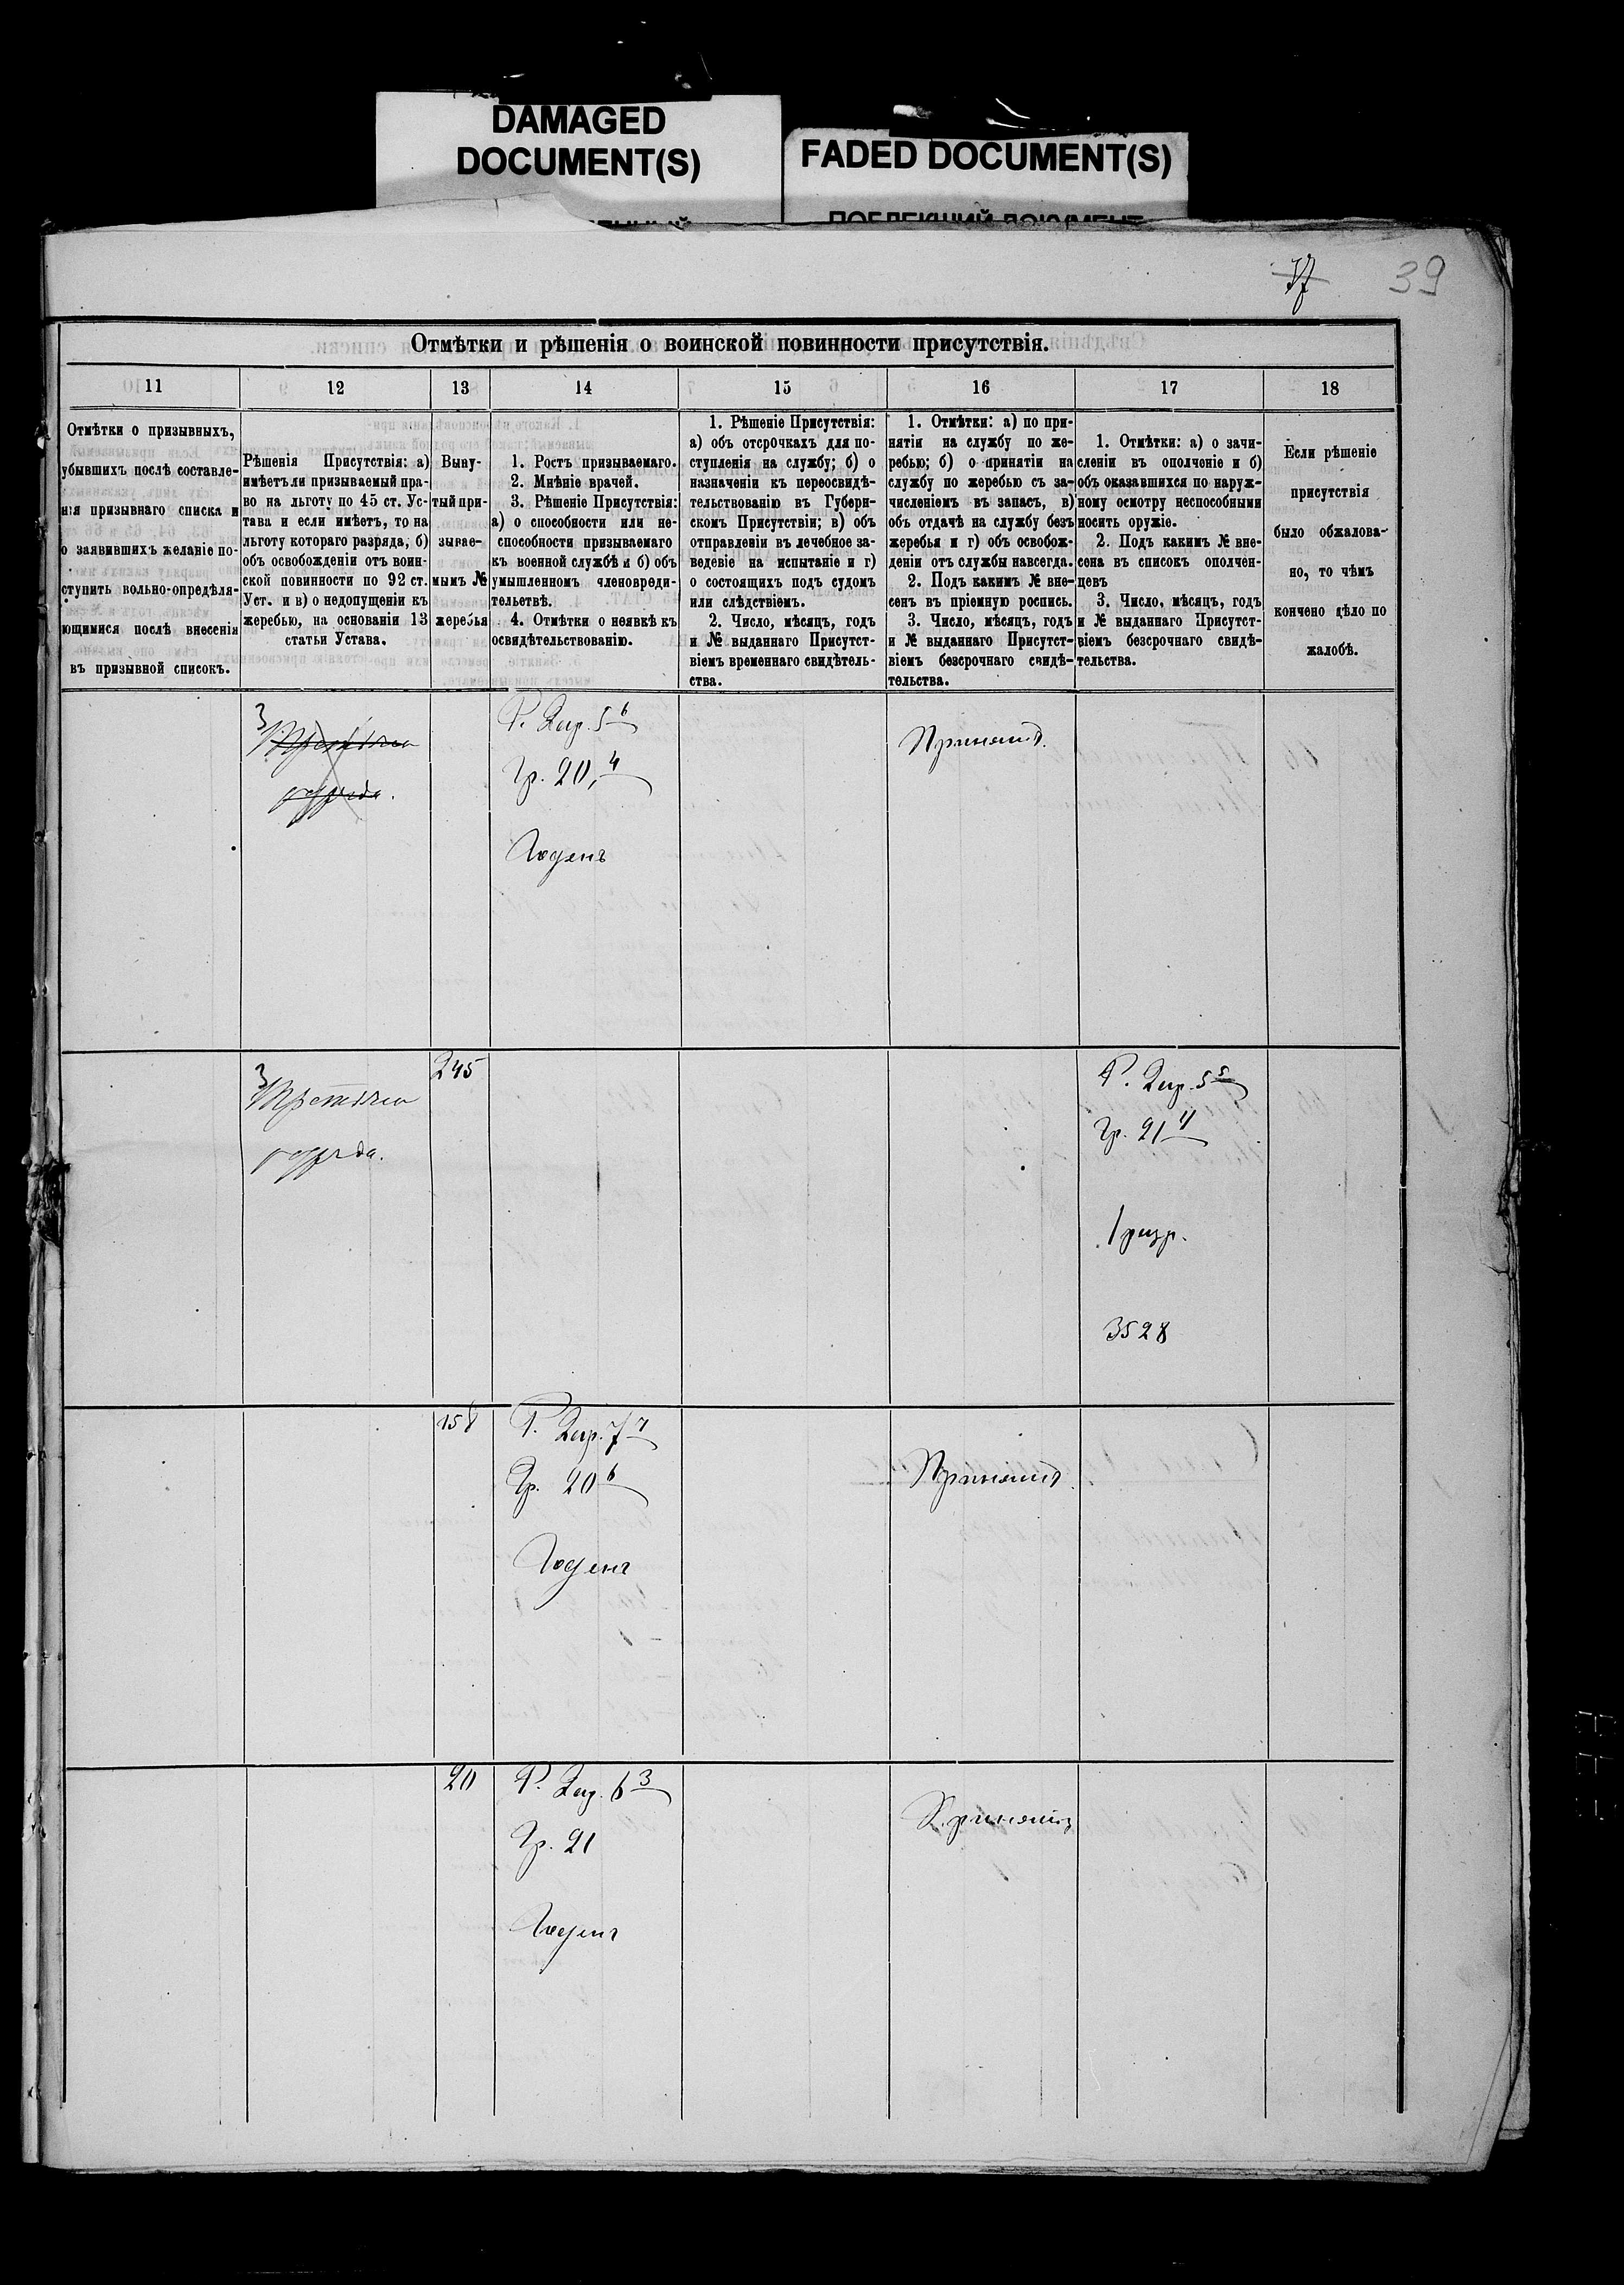 DAMAGED
DOCUMENT(S)
FADED DOCUMENT(S)
ПОБЛЕКШИЙ ДОКУМЕНТ
37
39
Отмѣтки и рѣшенія о воинской повинности присутствія.
11 12 13 14 15 16 17 18
Отмѣтки о призывныхъ,
убывшихъ послѣ составле-
нія призывнаго списка и
о заявившихъ желаніе по-
ступить вольно-опредѣля-
ющимися послѣ внесенія
въ призывной списокъ.
Рѣшенія Присутствія: а)
имѣетъ ли призываемый пра-
во на льготу по 45 ст. Ус-
тава и если имѣетъ, то на
льготу котораго разряда; б)
объ освобожденіи отъ воин-
ской повинности по 92 ст.
Уст. и в) о недопущеніи къ
жеребью, на основаніи 13
статьи Устава.
Выну-
тый при-
зывае-
мымъ №
жеребья
1. Ростъ призываемаго.
2. Мнѣніе врачей.
3. Рѣшеніе Присутствія:
а) о способности или не-
способности призываемаго
къ военной службѣ и б) объ
умышленномъ членовреди-
тельствѣ.
4. Отмѣтки о неявкѣ къ
освидѣтельствованію.
1. Рѣшеніе Присутствія:
а) объ отсрочкахъ для по-
ступленія на службу; б) о
назначеніи къ переосвидѣ-
тельствованію въ Губерн-
скомъ Присутствіи; в) объ
отправленіи въ лечебное за-
веденіе на испытаніе и г)
о состоящихъ подъ судомъ
или слѣдствіемъ.
2. Число, мѣсяцъ, годъ
и № выданнаго Присутст-
віемъ временнаго свидѣтель-
ства.
1. Отмѣтки: а) по при-
нятіи на службу по же-
ребью; б) о принятіи на
службу по жеребью съ за-
численіемъ въ запасъ, в)
объ отдачѣ на службу безъ
жеребья и г) объ освобож-
деніи отъ службы навсегда.
2. Подъ какимъ № вне-
сенъ въ пріемную роспись.
3. Число, мѣсяцъ, годъ
и № выданнаго Присутст-
віемъ безсрочнаго свидѣ-
тельства.
1. Отмѣтки: а) о зачи-
сленіи въ ополченіе и б)
объ оказавшихся по наруж-
ному осмотру неспособными
носить оружіе.
2. Подъ какимъ № вне-
сена въ списокъ ополчен-
цевъ
3. Число, мѣсяцъ, годъ
и № выданнаго Присутст-
віемъ безсрочнаго свидѣ-
тельства.
Если рѣшеніе
присутствія
было обжалова-
но, то чѣмъ
кончено дѣло по
жалобѣ.
3
Третьяго
разряда.
Р. 2 ар. 5 6
Гр. 20, 4
Годенъ
Принятъ.
3
Третьяго
разряда.
245
Р. 2 ар. 5 5
Гр. 21 4
1 разр.
3528
158
Р. 2 ар. 7 7
Гр. 20 6
Годенъ
Принятъ.
20
Р. 2 ар. 6 3
Гр. 21
Годенъ
Принятъ